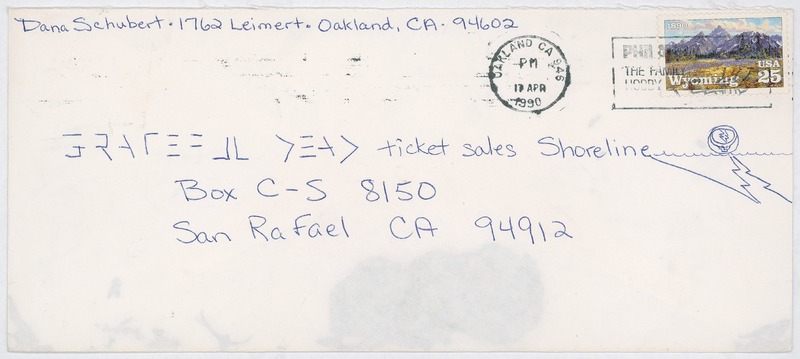 Dana Schubert · 1762 Leimert · Oakland, CA · 94602
OAKLAND CA 946
PM
17 APR
1990
THE FAMILY
HOBBY
1890
Wyoming
USA
25
GRATEFUL DEAD ticket sales Shoreline
Box C-S 8150
San Rafael CA 94912